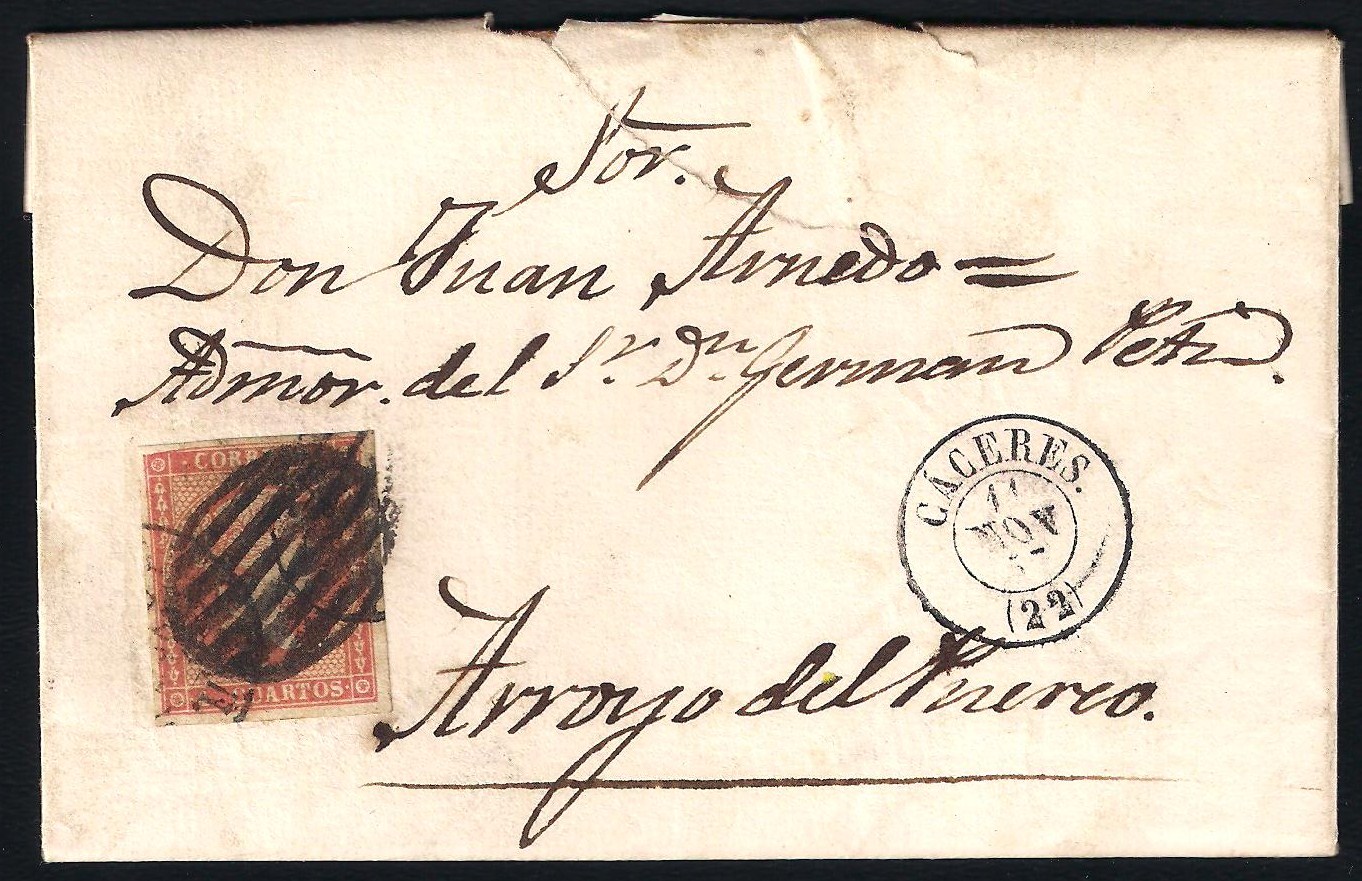 Sor.
Don Juan Arnedo =
Admor. del Sr. Dn. German Petit.
CORR
CUARTOS.
CÁCERES.
NOV
(22)
Arroyo del Puerco.